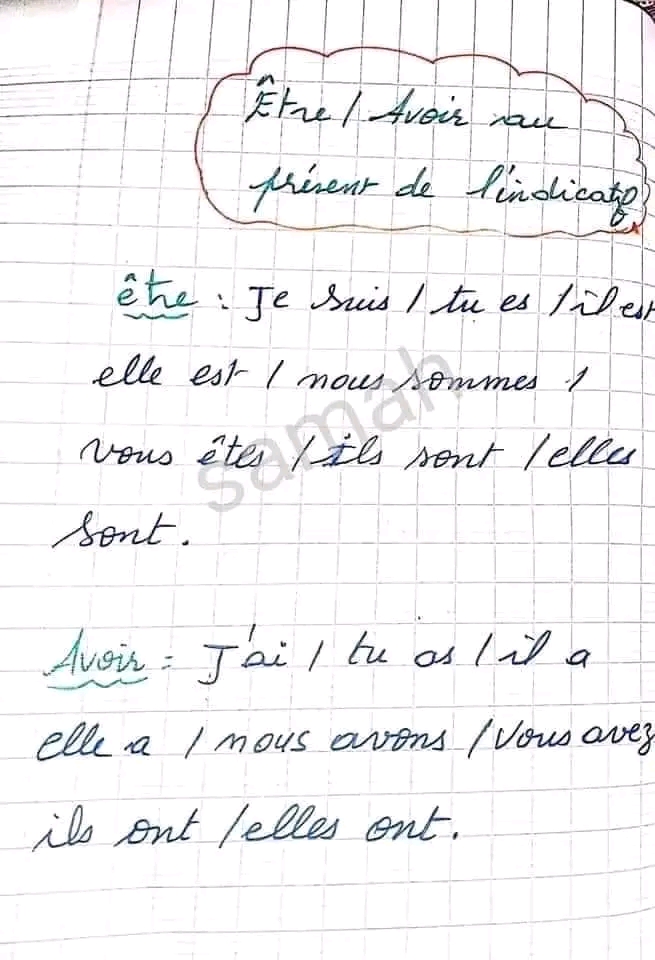 Être / Avoir au
présent de l'indicatif
être : Je suis / tu es / il est
elle est / nous sommes /
vous êtes / ils sont / elles
sont.
Avoir : J'ai / tu as / il a
elle a / nous avons / Vous avez
ils ont / elles ont.
samah